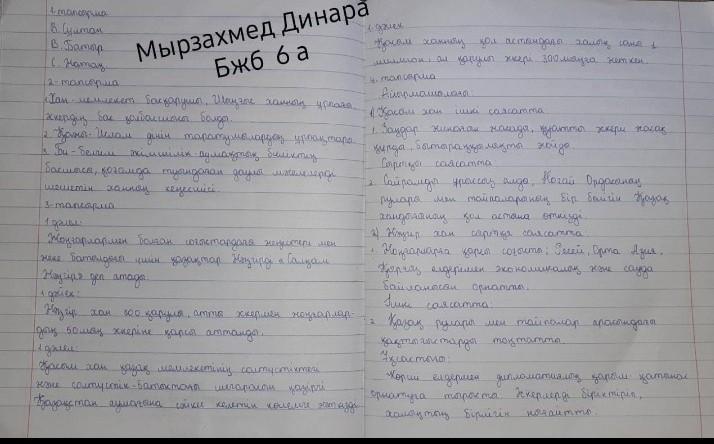 1-тапсырма
В. Султан
В. Батыр
С. Натан
Мырзахмед Динара
Бжб 6 а
2-тапсырма
1. Хан-мемлекет басқарушы, Шыңғыс ханның ұрпағы,
әскердің бас қолбасшысы болды.
2. Қожы-Ислам дінін таратушылардың ұрпақтары.
3. Би-белгілі әкімшілік-аумақтық бөліктің
басшысы, қоғамда туындаған даулы мәселелерді
шешетін ханның кеңесшісі.
3-тапсырма
1 дәлел:
Жоңғарлармен болған соғыстардағы жеңістері мен
жеке батылдығы үшін қазақтар Жәңгірді «Салқам
Жәңгір» деп атады.
1 дәйек:
Жәңгір хан 600 қарулы, атты әскермен жоңғарлар-
дың 50 мың әскеріне қарсы аттанды.
1 дәлел:
Қасым хан қазақ мемлекетінің солтүстіктегі
және солтүстік-батыстағы шекарасын қазіргі
Қазақстан аумағына сәйке келетін көлемге жеткізді
1 дәйек
Қасым ханның қол астындағы халық саны 1
миллион, ал қарулы әскері 300 мыңға жеткен.
4-тапсырма
Айырмашылығы:
1) Қасым хан ішкі саясатта
1. Заңдар жинағын жасады, қуатты әскери жасақ
құрды, бытыраңқылықты жойды.
Сыртқы саясатта
2. Сайрамды ұрыссыз алды, Ноғай Ордасының
рулары мен тайпаларының бір бөлігін Қазақ
хандығының қол астына өткізді.
2) Жәңгір хан сыртқы саясатта.
1. Жоңғарларға қарсы соғысты; Ресей, Орта Азия,
елдермен экономикалық және сауда
байланысын орнатты.
Ішкі саясатта:
2. Қазақ рулары мен тайпалар арасындағы
қақтығыстарды тоқтатты.
Ұқсастығы:
Көрші елдермен дипломатиялық қарым-қатынас
орнатуға тырысты. Әскерлерді біріктіріп,
халықтың бірлігін нығайтты.